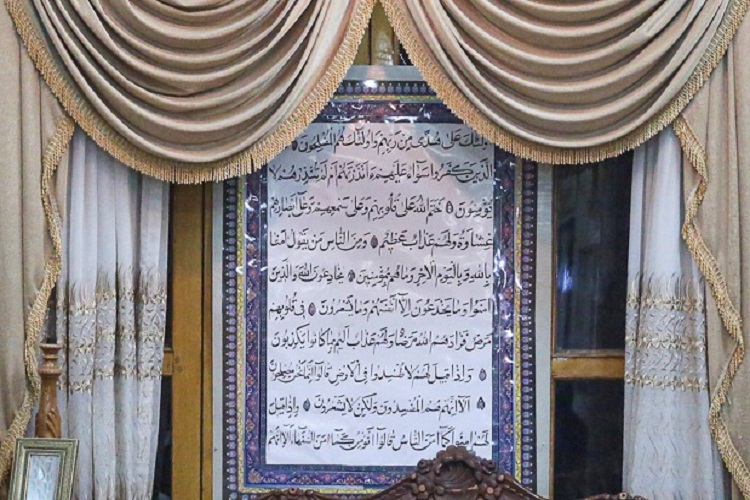 اولئك على هدى من ربهم واولئك هم المفلحون ان
الذين كفروا سواء عليهم ءانذرتهم ام لم تنذرهم لا
يؤمنون ختم الله على قلوبهم وعلى سمعهم وعلى ابصارهم
غشاوة ولهم عذاب عظيم ومن الناس من يقول امنا
بالله وباليوم الآخر وما هم بمؤمنين يخادعون الله والذين
امنوا وما يخدعون الا انفسهم وما يشعرون فى قلوبهم
مرض فزادهم الله مرضا ولهم عذاب اليم بما كانوا يكذبون
واذا قيل لهم لا تفسدوا فى الارض قالوا انما نحن مصلحون
الا انهم هم المفسدون ولكن لا يشعرون واذا قيل
لهم امنوا كما امن الناس قالوا انؤمن كما امن السفهاء الا انهم